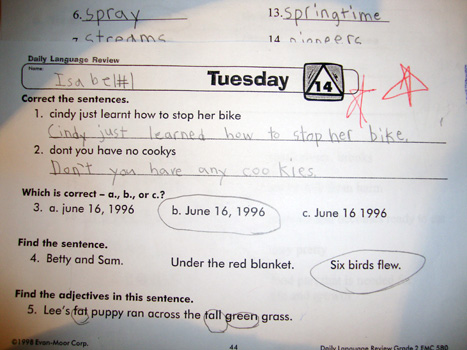 6. spray 13. springtime
7. streams 14. pioneers
Daily Language Review
Name: Isabel #1 Tuesday 14
Correct the sentences.
1. cindy just learnt how to stop her bike
Cindy just learned how to stop her bike.
2. dont you have no cookys
Don't you have any cookies.
Which is correct – a., b., or c.?
3. a. june 16, 1996 b. June 16, 1996 c. June 16 1996
Find the sentence.
4. Betty and Sam. Under the red blanket. Six birds flew.
Find the adjectives in this sentence.
5. Lee's fat puppy ran across the tall green grass.
©1998 Evan-Moor Corp. 44 Daily Language Review Grade 2 EMC 580